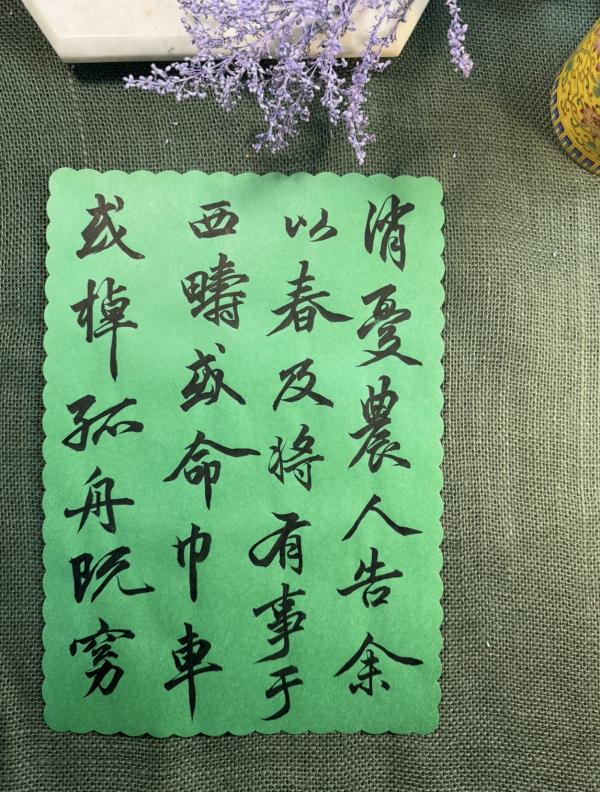 消憂農人告余
以春及將有事于
西疇或命巾車
或棹孤舟既窮